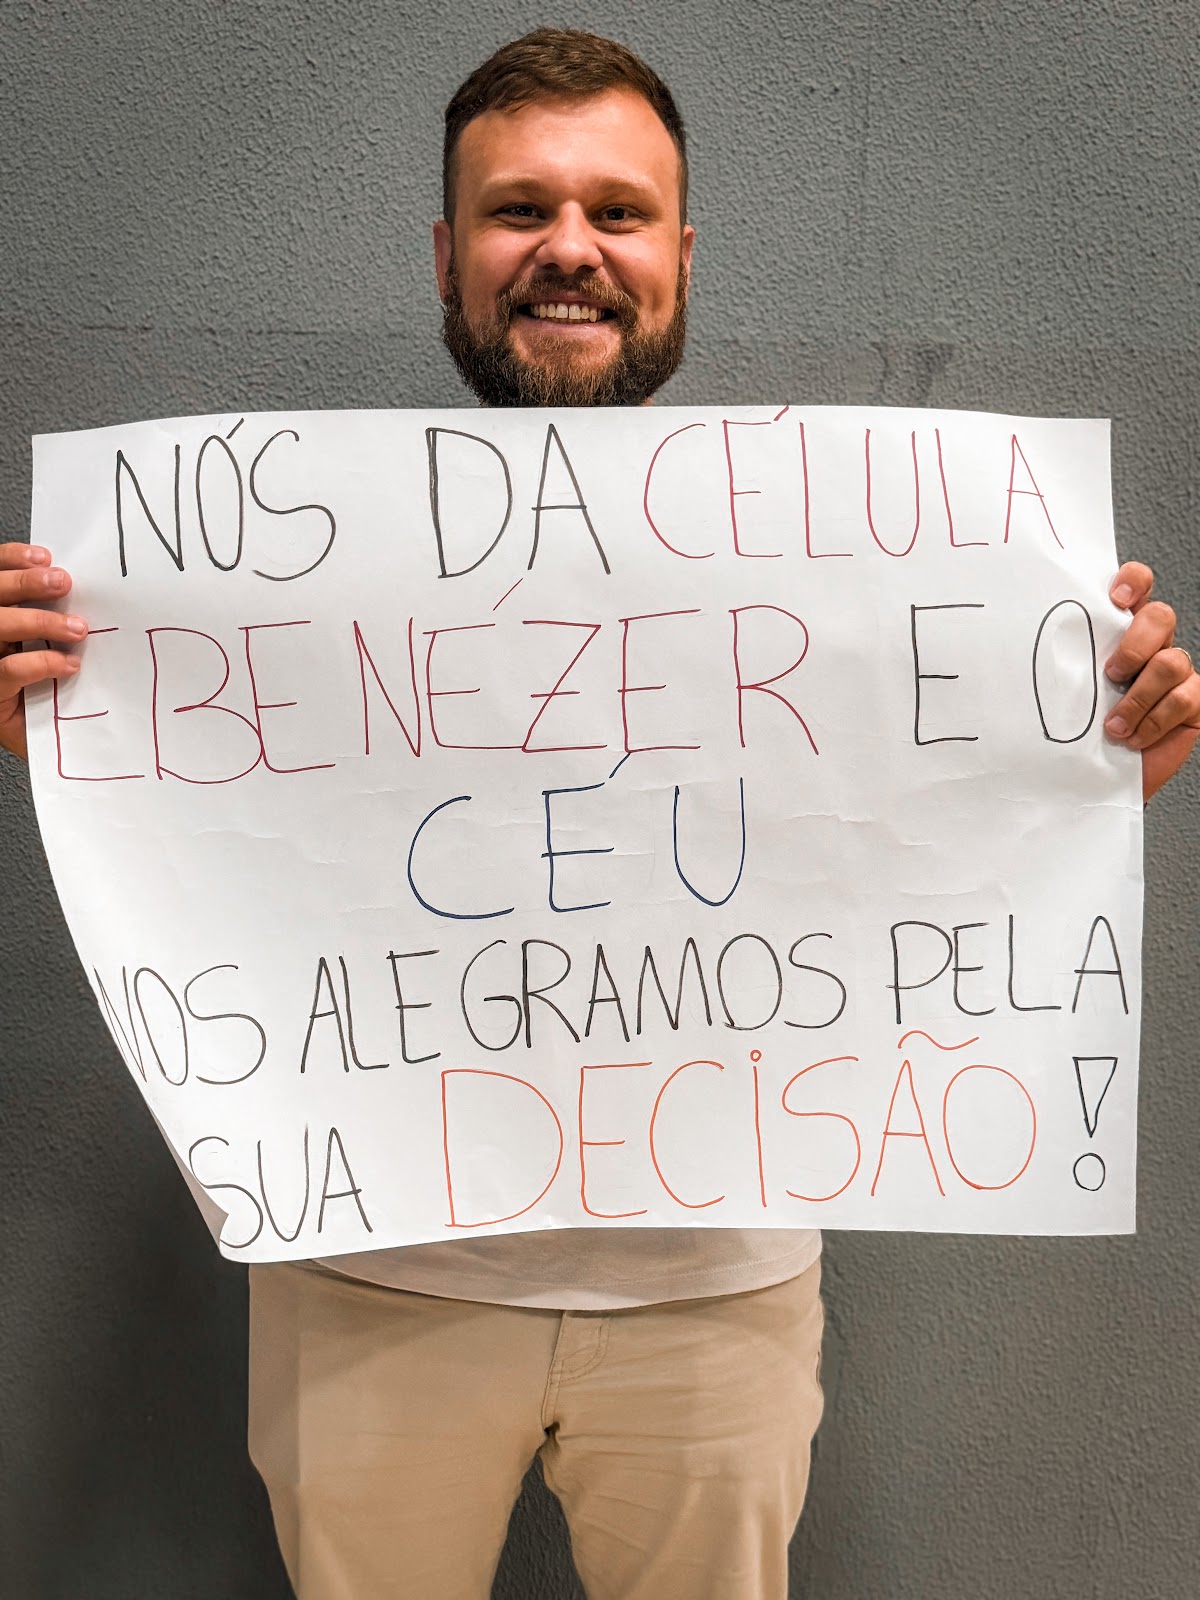 NÓS DA CÉLULA
EBENÉZER E O
CÉU
NOS ALEGRAMOS PELA
SUA DECISÃO!